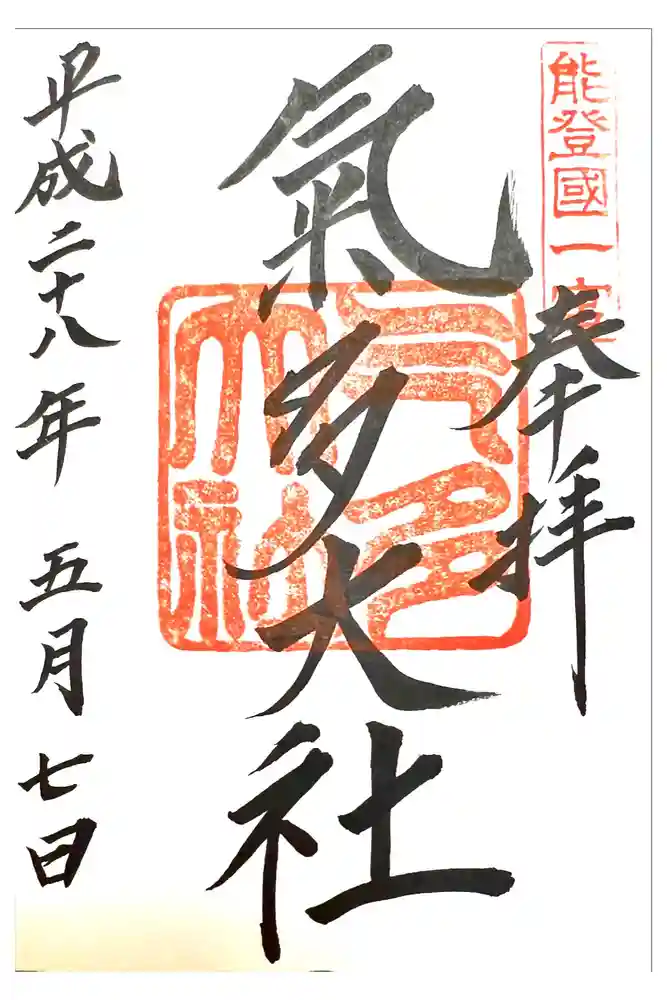 能登國一宮
奉拝
氣多大社
平成二十八年 五月七日
氣多大社